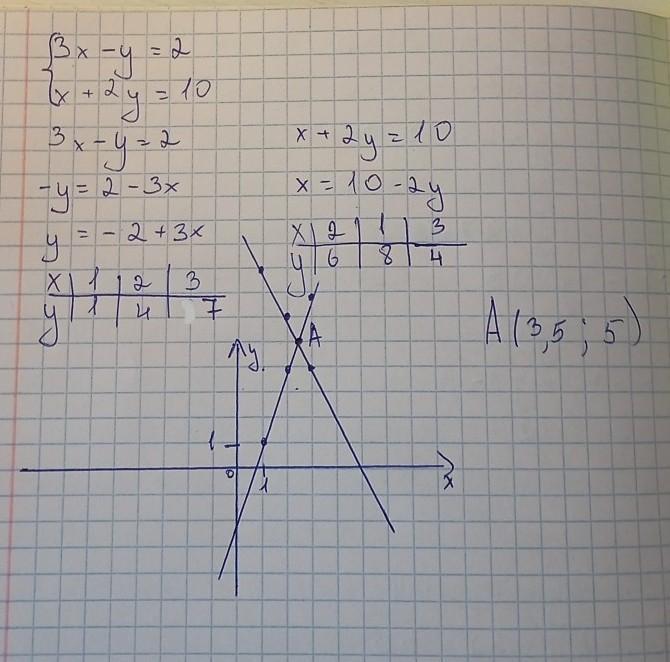 {3x - y = 2
x + 2y = 10
3x - y = 2
-y = 2 - 3x
y = - 2 + 3x
x | 1 | 2 | 3
y | 1 | 4 | 7
x + 2y = 10
x = 10 - 2y
x | 2 | 1 | 3
y | 6 | 8 | 4
A (3,5 ; 5)
A
y
1
0
1
x